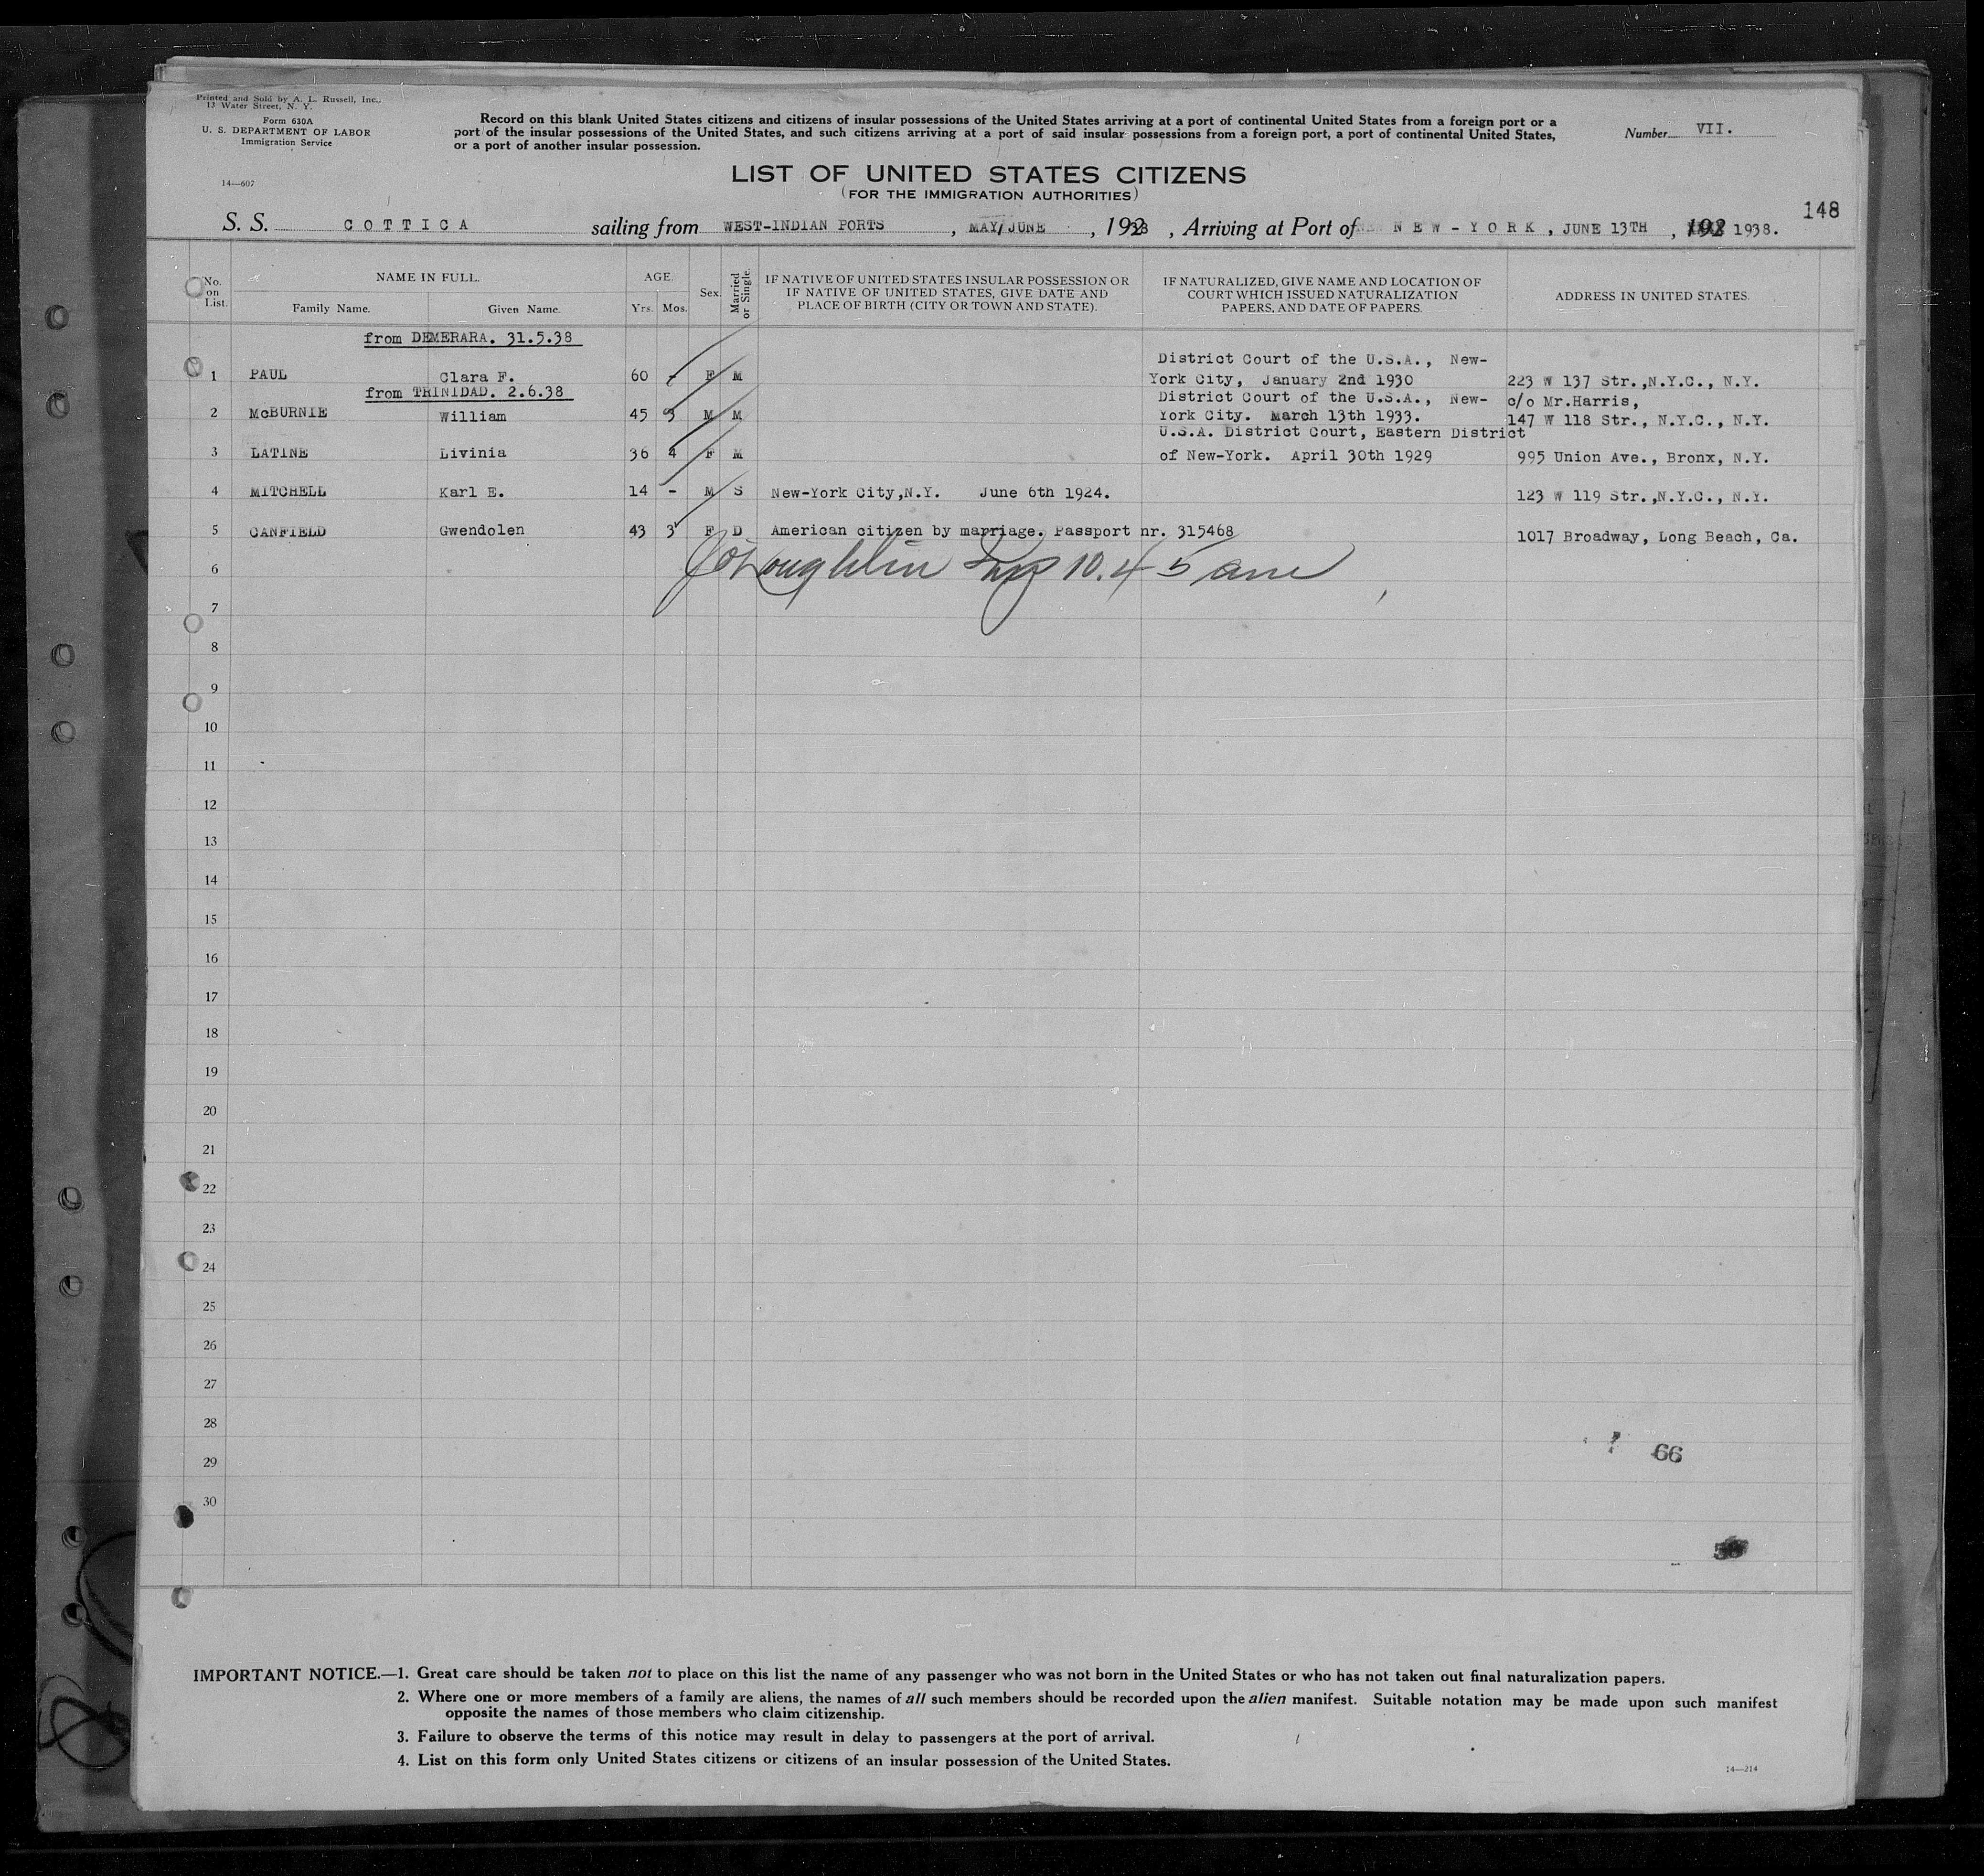 Printed and Sold by A. L. Russell, Inc.,
13 Water Street, N. Y.
Form 630A
U. S. DEPARTMENT OF LABOR
Immigration Service
14—607
Record on this blank United States citizens and citizens of insular possessions of the United States arriving at a port of continental United States from a foreign port or a
port of the insular possessions of the United States, and such citizens arriving at a port of said insular possessions from a foreign port, a port of continental United States,
or a port of another insular possession.
Number VII.
LIST OF UNITED STATES CITIZENS
(FOR THE IMMIGRATION AUTHORITIES)
148
S. S. COTTICA sailing from WEST-INDIAN PORTS, MAY/JUNE, 1938, Arriving at Port of NEW-YORK, JUNE 13TH, 192 1938.
No. on List.
NAME IN FULL.
Family Name. Given Name.
AGE.
Yrs. Mos.
Sex.
Married or Single.
IF NATIVE OF UNITED STATES INSULAR POSSESSION OR
IF NATIVE OF UNITED STATES, GIVE DATE AND
PLACE OF BIRTH (CITY OR TOWN AND STATE).
IF NATURALIZED, GIVE NAME AND LOCATION OF
COURT WHICH ISSUED NATURALIZATION
PAPERS, AND DATE OF PAPERS.
ADDRESS IN UNITED STATES.
from DEMERARA. 31.5.38
District Court of the U.S.A., New-
1 PAUL Clara F. 60 - F M York City, January 2nd 1930 223 W 137 Str.,N.Y.C., N.Y.
from TRINIDAD. 2.6.38
District Court of the U.S.A., New- c/o Mr.Harris,
2 McBURNIE William 45 3 M M York City. March 13th 1933. 147 W 118 Str., N.Y.C., N.Y.
U.S.A. District Court, Eastern District
3 LATINE Livinia 36 4 F M of New-York. April 30th 1929 995 Union Ave., Bronx, N.Y.
4 MITCHELL Karl E. 14 - M S New-York City,N.Y. June 6th 1924. 123 W 119 Str.,N.Y.C., N.Y.
5 CANFIELD Gwendolen 43 3 F D American citizen by marriage. Passport nr. 315468 1017 Broadway, Long Beach, Ca.
J O'Loughlin Insp 10.45 am
6
7
8
9
10
11
12
13
14
15
16
17
18
19
20
21
22
23
24
25
26
27
28
66
29
30
IMPORTANT NOTICE.—1. Great care should be taken not to place on this list the name of any passenger who was not born in the United States or who has not taken out final naturalization papers.
2. Where one or more members of a family are aliens, the names of all such members should be recorded upon the alien manifest. Suitable notation may be made upon such manifest
opposite the names of those members who claim citizenship.
3. Failure to observe the terms of this notice may result in delay to passengers at the port of arrival.
4. List on this form only United States citizens or citizens of an insular possession of the United States.
14—214